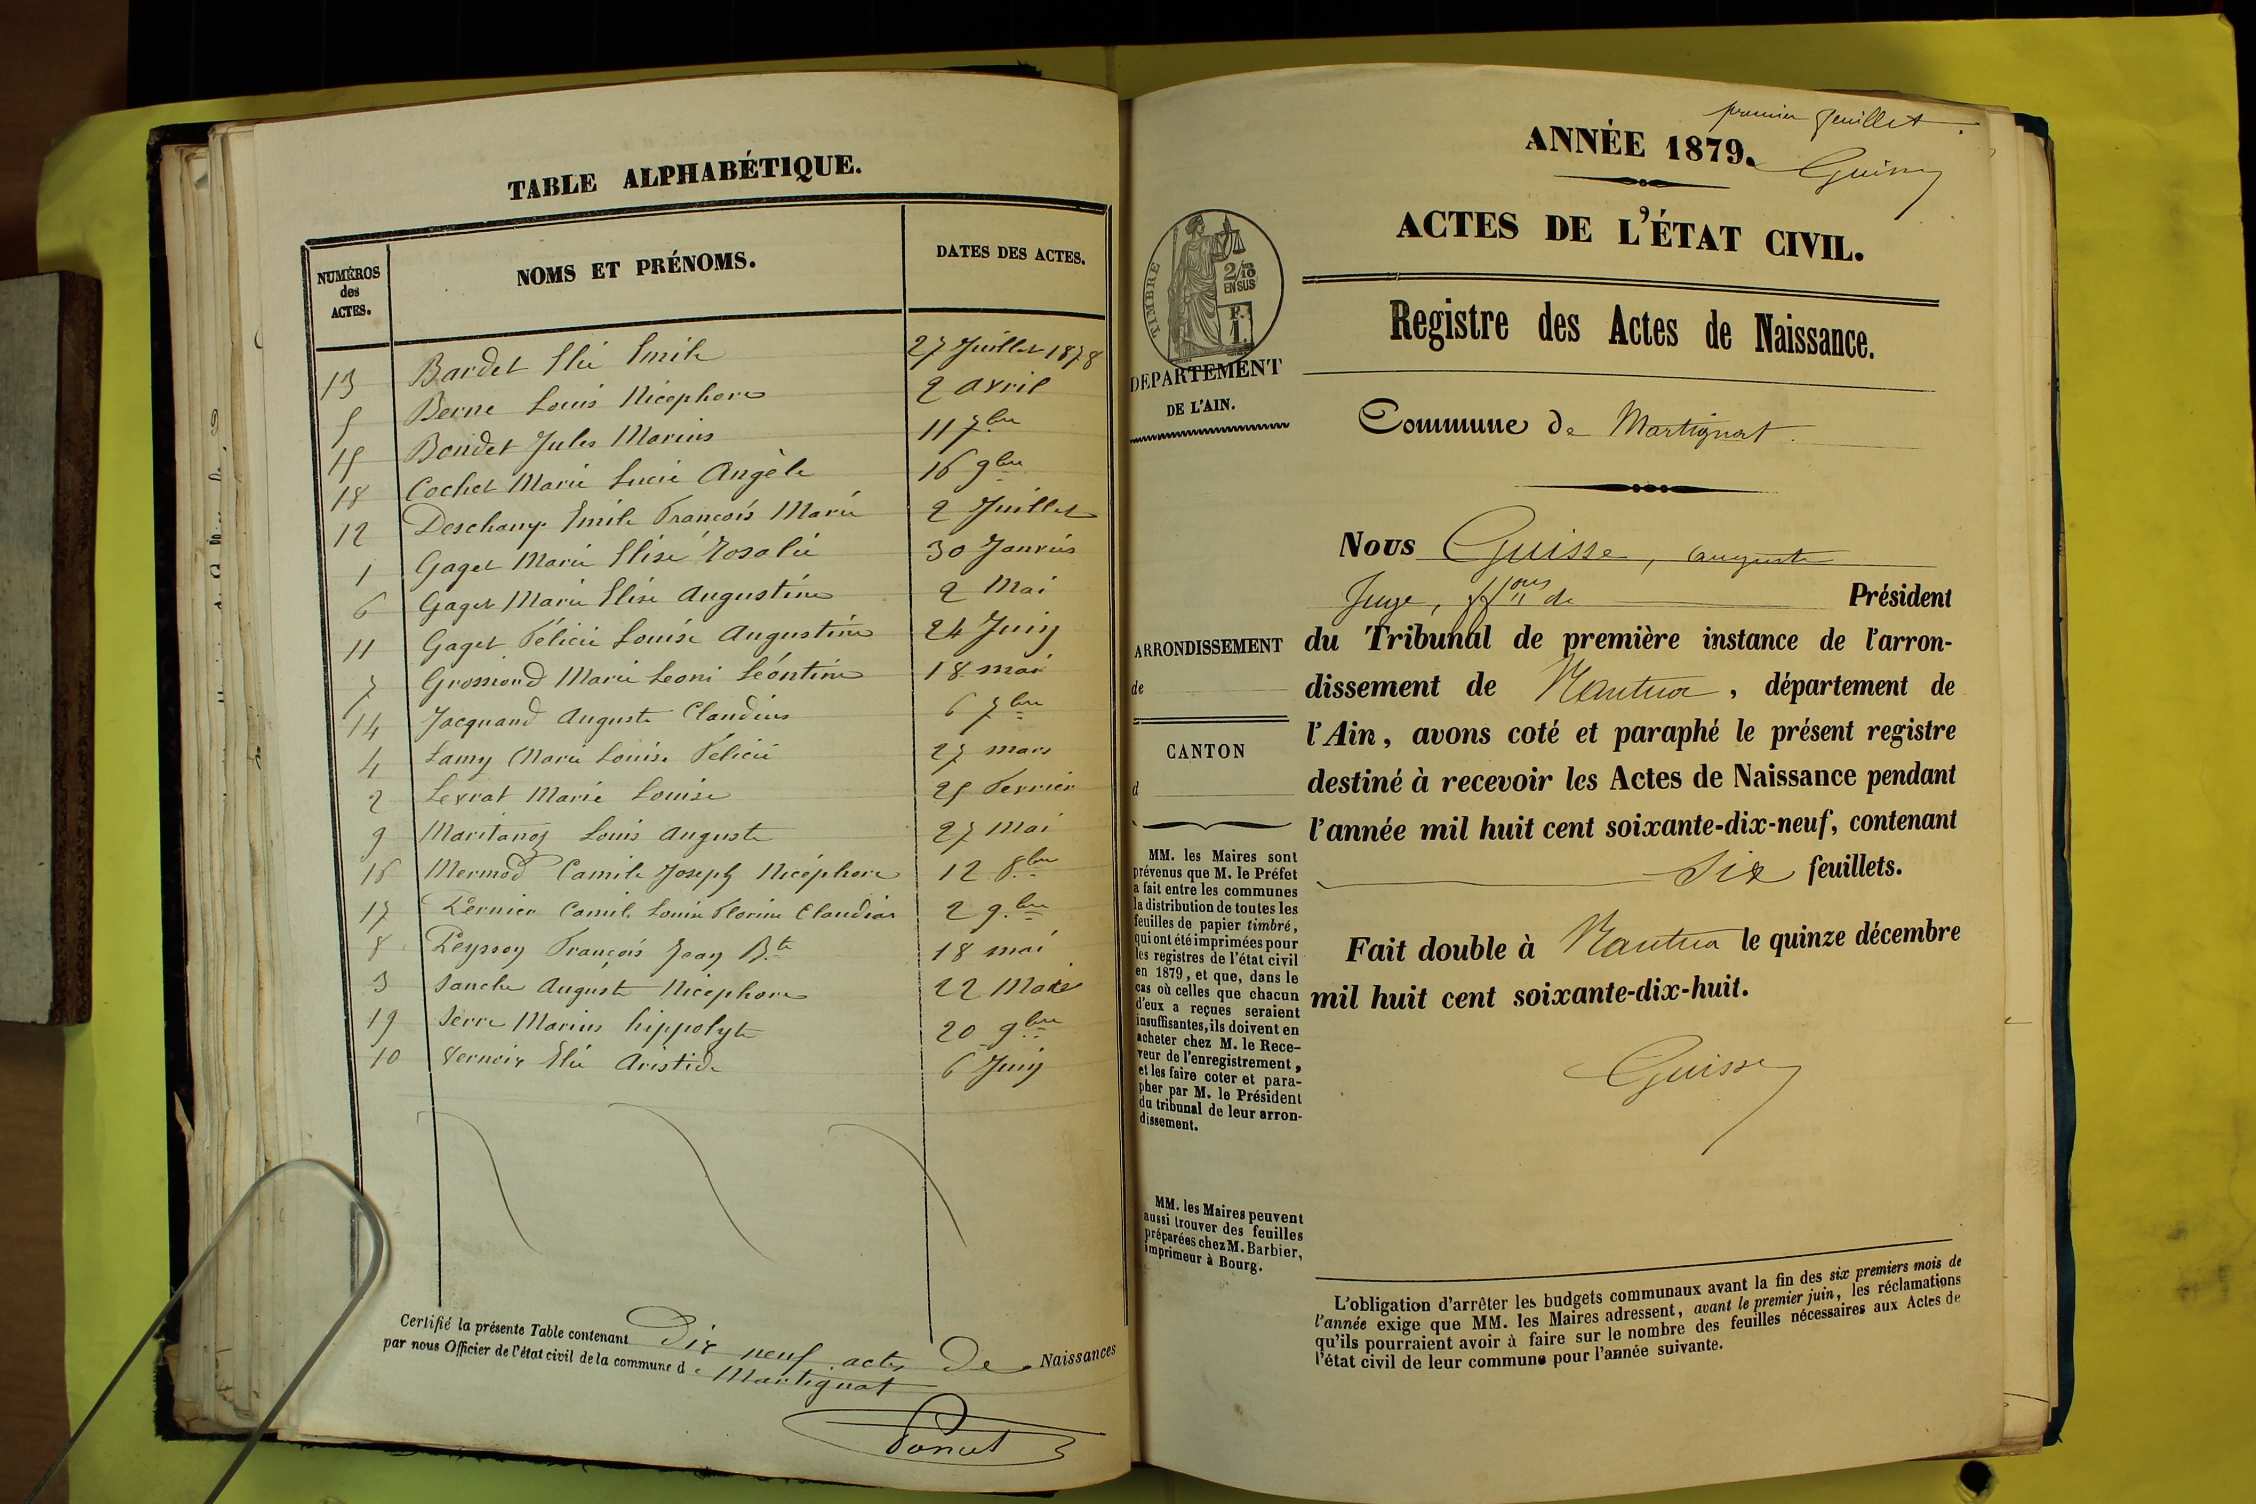 TABLE ALPHABÉTIQUE.
NUMÉROS des ACTES. NOMS ET PRÉNOMS. DATES DES ACTES.
13 Bardet Elie Emile 27 Juillet 1878
5 Berne Louis Nicéphore 2 avril
15 Bondet Jules Marius 11 7bre
18 Cochet Marie Lucie Angèle 16 9bre
12 Deschamp Emile François Marie 2 Juillet
1 Gaget Marie Elise Rosalie 30 Janvier
6 Gaget Marie Elise Augustine 2 Mai
11 Gaget Félicie Louise Augustine 24 Juin
7 Grossiord Marie Leoni Léontine 18 mai
14 Jacquand Auguste Claudius 6 7bre
4 Lamy Marie Louise Félicie 27 mars
2 Levrat Marie Louise 25 Fevrier
9 Maritanoz Louis Auguste 27 Mai
16 Mermod Camile Joseph Nicéphore 12 8bre
17 Pernier Camil. Louis Florine 2 9bre
8 Peysson François Jean Bte 18 mai
3 Sanche Auguste Nicephore 22 Mars
19 Serre Marius hippolyte 20 9bre
10 Vernoix Elie Aristide 6 Juin
Certifié la présente Table contenant Dix neuf actes de Naissances
par nous Officier de l'état civil de la commune de Martignat
Poncet
premier feuillet.
ANNÉE 1879.
Guisse
ACTES DE L'ÉTAT CIVIL.
TIMBRE
2/10 EN SUS
F. 1.
Registre des Actes de Naissance.
DEPARTEMENT
DE L'AIN.
Commune de Martignat.
Nous Guisse, auguste
Juge, ffons de Président
du Tribunal de première instance de l'arron-
dissement de Nantua, département de
l'Ain, avons coté et paraphé le présent registre
destiné à recevoir les Actes de Naissance pendant
l'année mil huit cent soixante-dix-neuf, contenant
Six feuillets.
Fait double à Nantua le quinze décembre
mil huit cent soixante-dix-huit.
Guisse
ARRONDISSEMENT
de
CANTON
d
MM. les Maires sont
prévenus que M. le Préfet
a fait entre les communes
la distribution de toutes les
feuilles de papier timbré,
qui ont été imprimées pour
les registres de l'état civil
en 1879, et que, dans le
cas où celles que chacun
d'eux a reçues seraient
insuffisantes, ils doivent en
acheter chez M. le Rece-
veur de l'enregistrement,
et les faire coter et para-
pher par M. le Président
du tribunal de leur arron-
dissement.
MM. les Maires peuvent
aussi trouver des feuilles
préparées chez M. Barbier,
imprimeur à Bourg.
L'obligation d'arrêter les budgets communaux avant la fin des six premiers mois de
l'année exige que MM. les Maires adressent, avant le premier juin, les réclamations
qu'ils pourraient avoir à faire sur le nombre des feuilles nécessaires aux Actes de
l'état civil de leur commune pour l'année suivante.